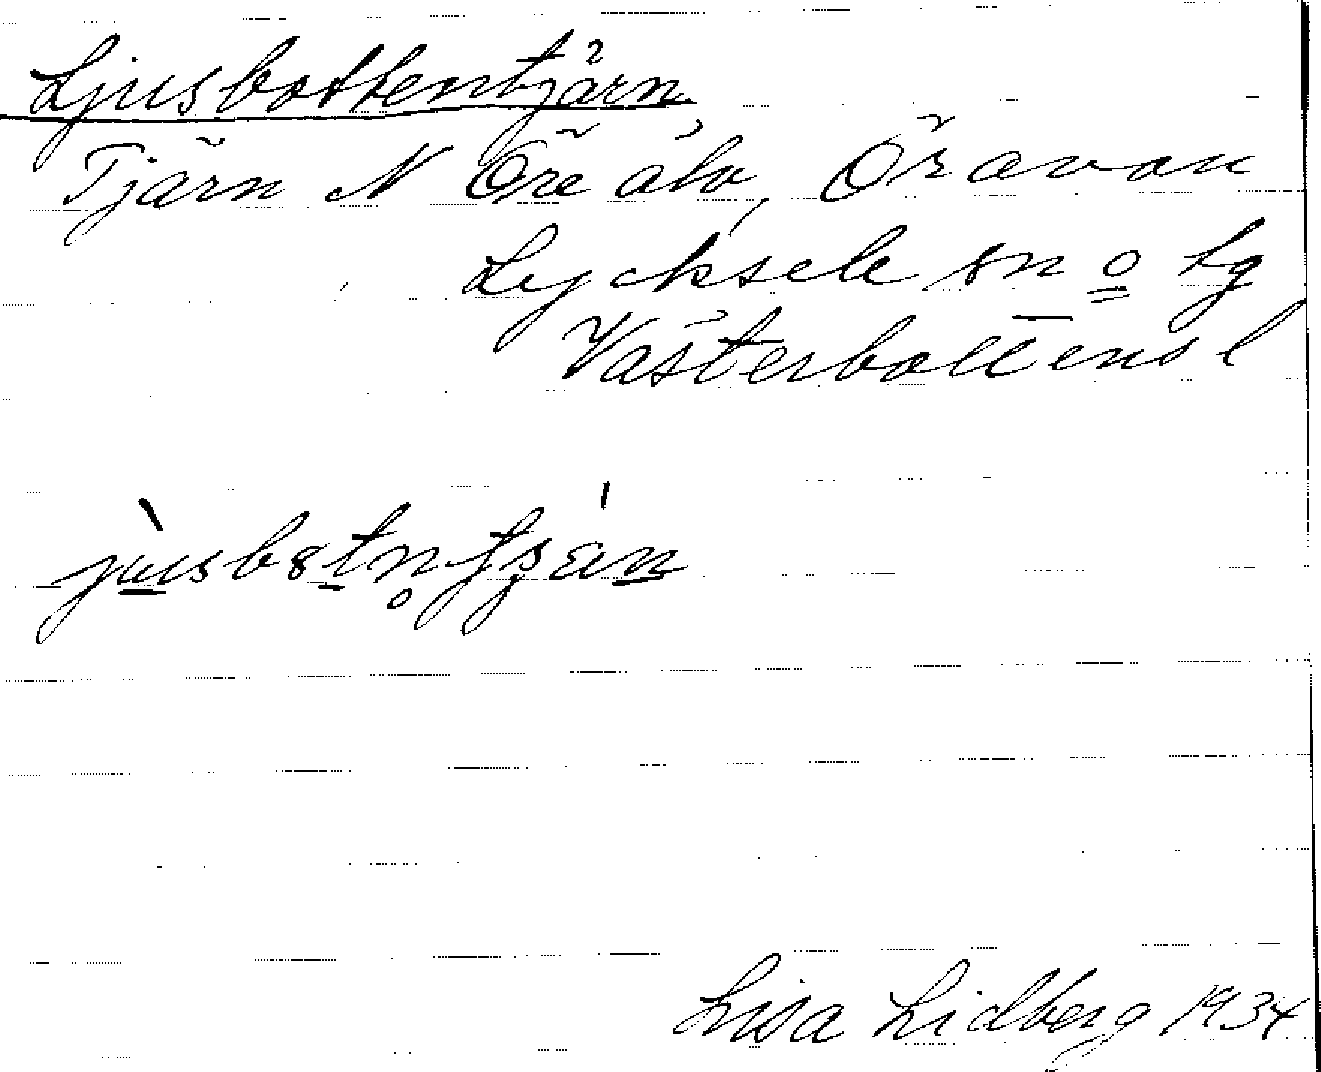 Ljusbottentjärn
Tjärn N Öre älv, Öravan
Lycksele sn o lg
Västerbottens l
Lisa Lidberg 1934